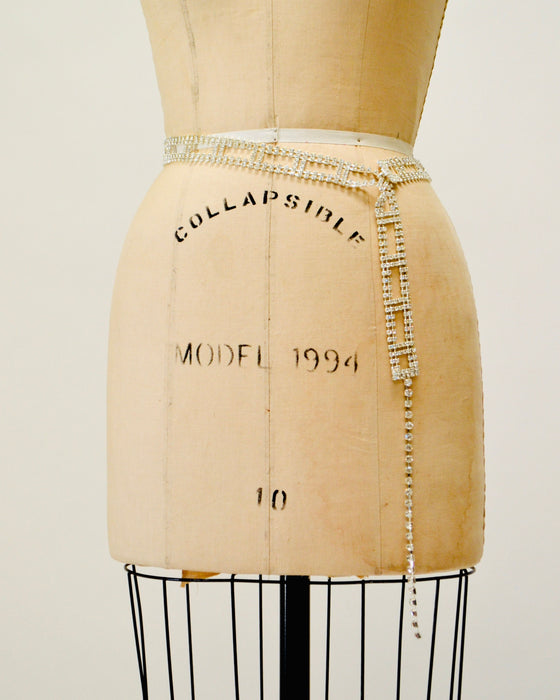 COLLAPSIBLE
MODEL 1994
10